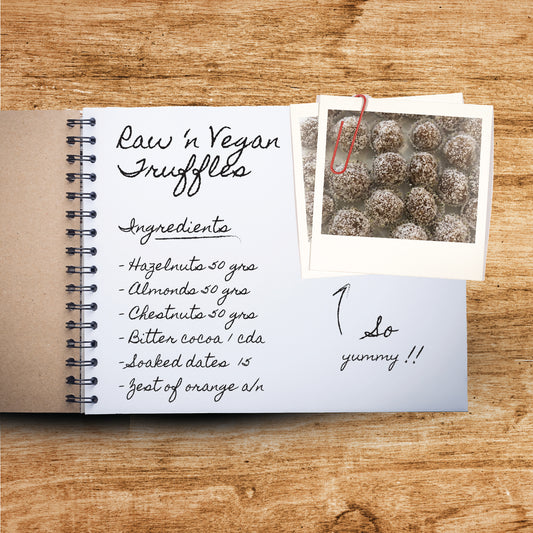 Raw 'n Vegan
Truffles
Ingredients
- Hazelnuts 50 grs
- Almonds 50 grs
- Chestnuts 50 grs
- Bitter cocoa 1 cda
- Soaked dates 15
- Zest of orange a/n
So
yummy !!